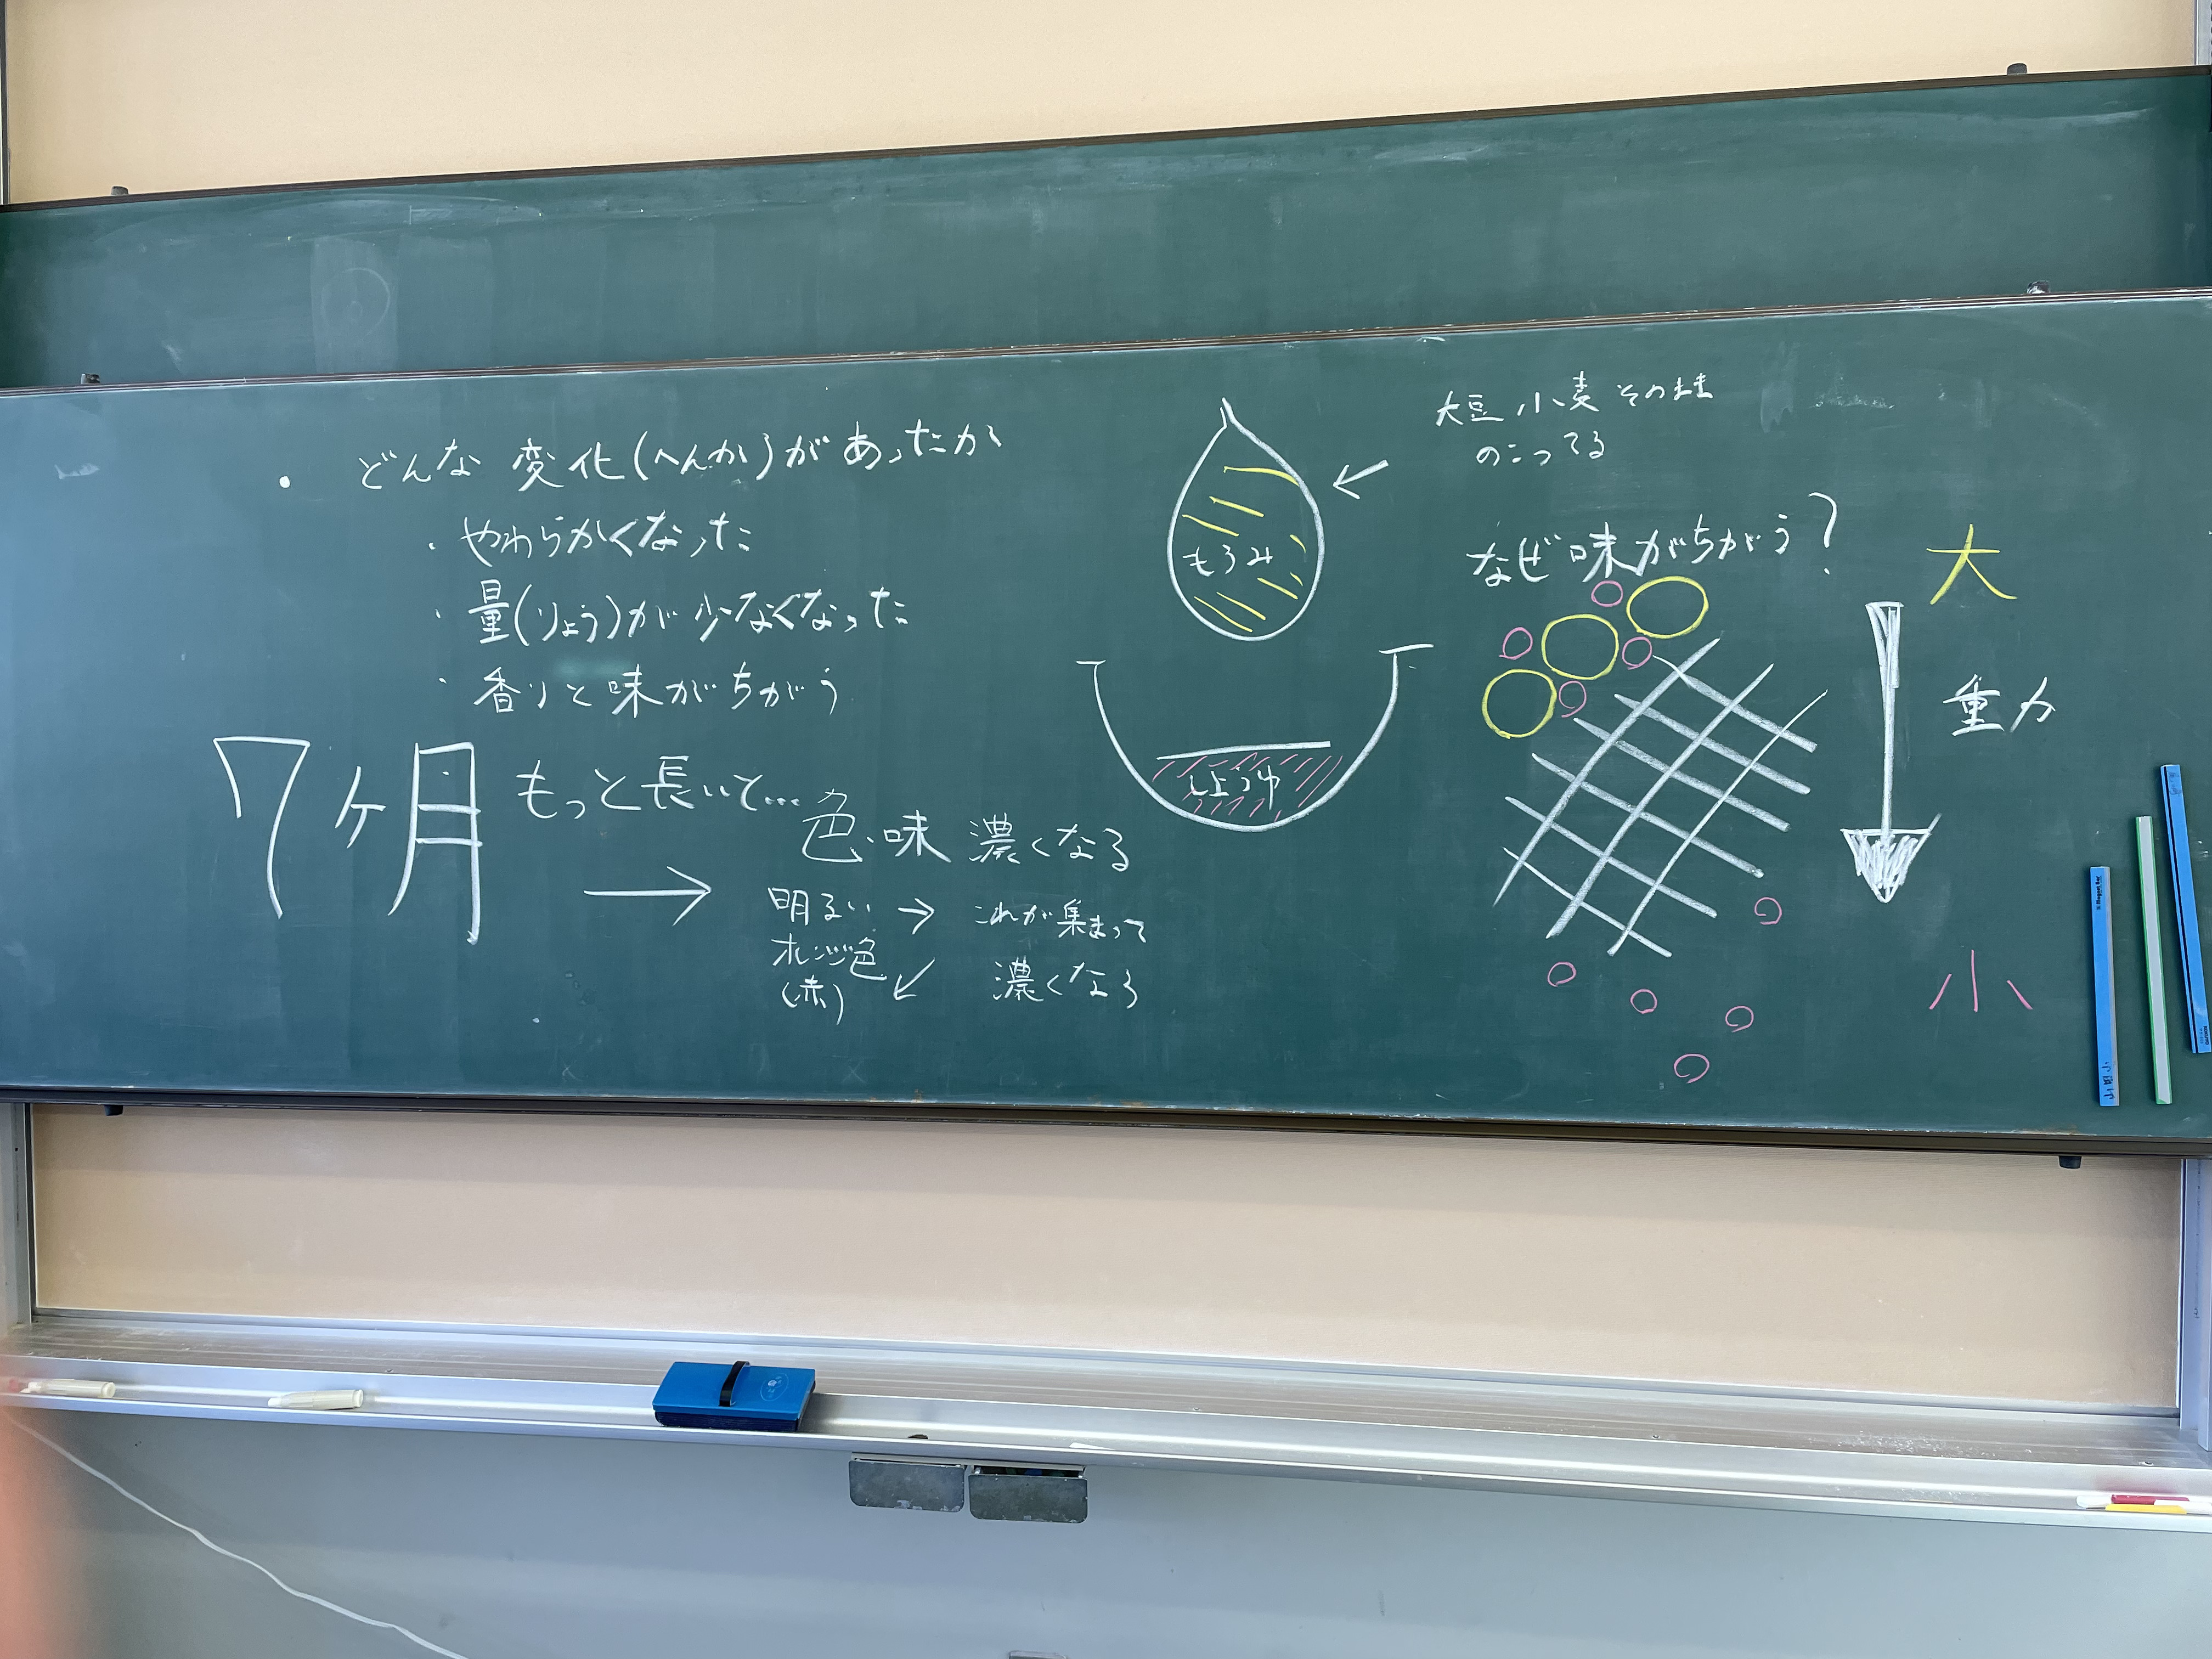 ・ どんな 変化(へんか)があったか
・ やわらかくなった
・ 量(りょう)が少なくなった
・ 香りと味がちがう
7ヶ月 もっと長いと…
→ 色・味 濃くなる
明るい → これが集まって
オレンジ色
(赤) ↙ 濃くなる
もろみ
しょうゆ
← 大豆 小麦 そのまま
のこってる
なぜ味がちがう?
大
重力
小